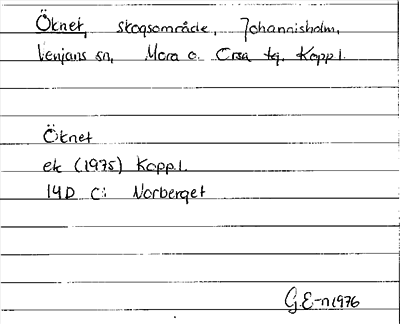 Öknet, skogsområde, Johannisholm,
Venjans sn, Mora o. Orsa tg. Kopp l.
Öknet
ek (1975) Kopp.l.
14D c: Norberget
G.E-n 1976